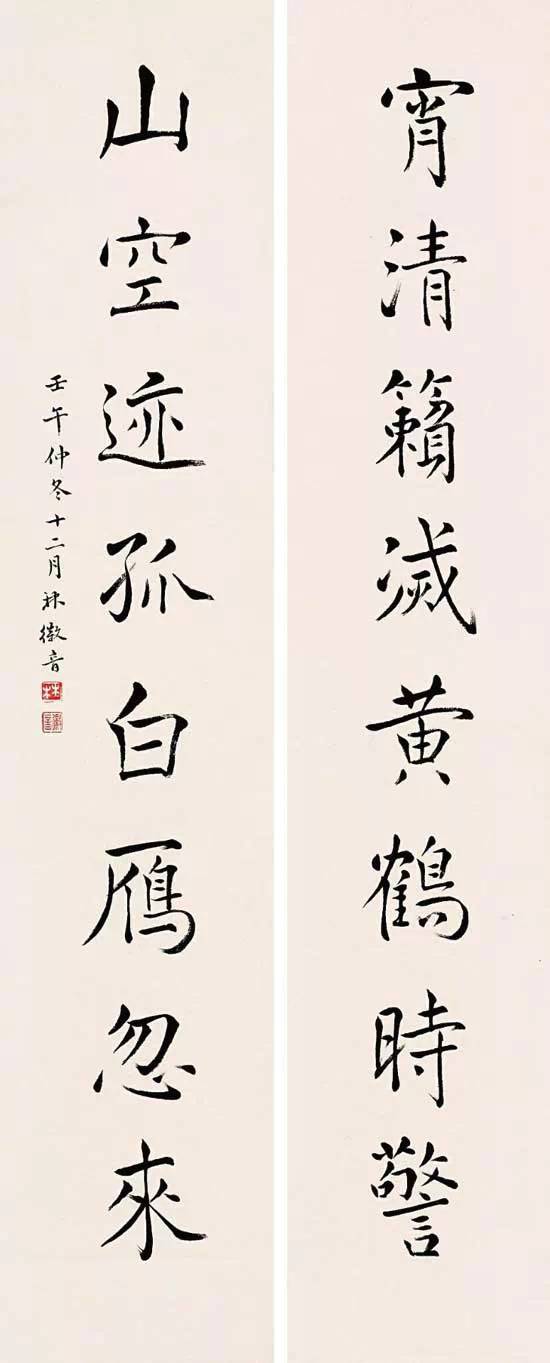 宵清籟滅黃鶴時警
山空迹孤白鴈忽來
壬午仲冬十二月林徽音
林